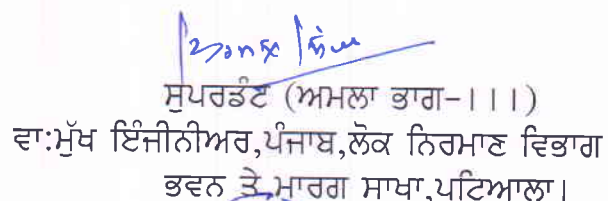 ਸੁਪਰਡੰਟ (ਅਮਲਾ ਭਾਗ-।।।)
ਵਾ:ਮੁੱਖ ਇੰਜੀਨੀਅਰ,ਪੰਜਾਬ,ਲੋਕ ਨਿਰਮਾਣ ਵਿਭਾਗ
ਭਵਨ ਤੇ ਮਾਰਗ ਸਾਖਾ,ਪਟਿਆਲਾ।